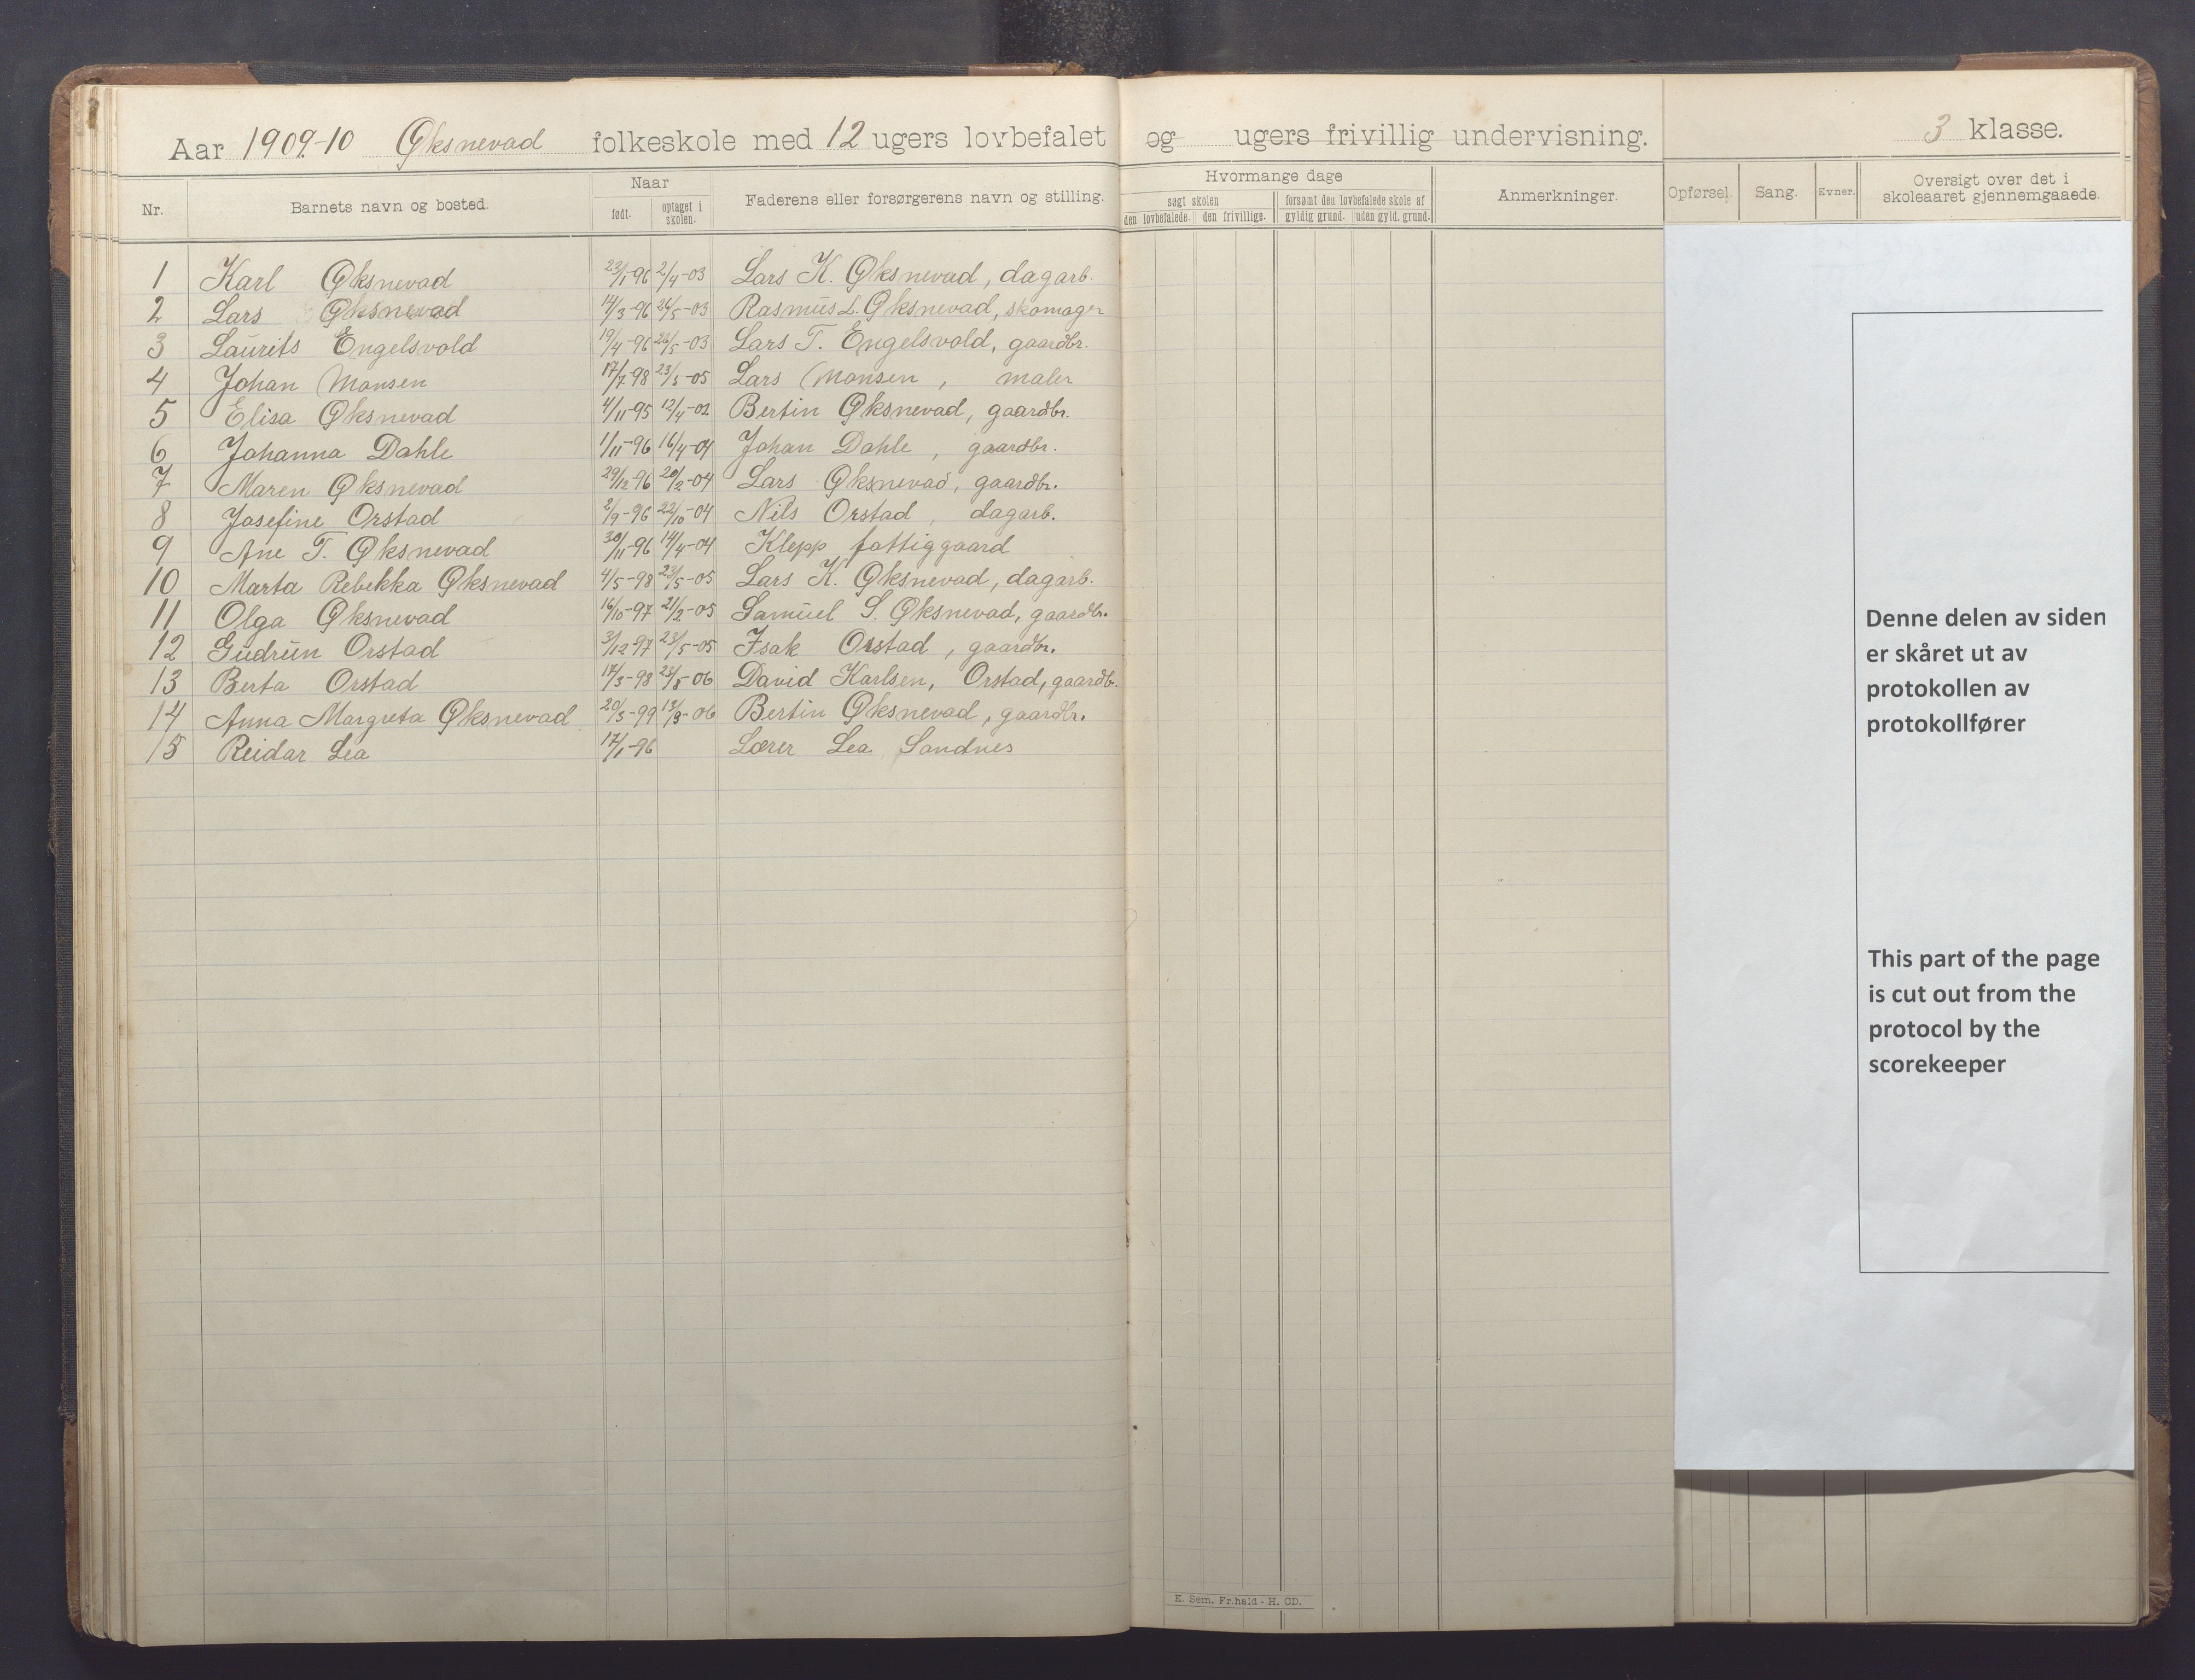 Aar 1909-10 Øksnevad folkeskole med 12 ugers lovbefalet og ugers frivillig undervisning. 3 klasse.
Nr. Barnets navn og bosted. Naar født. optaget i skolen. Faderens eller forsørgerens navn og stilling. Hvormange dage søgt skolen den lovbefalede. den frivillige. forsømt den lovbefalede skole af gyldig grund. uden gyld. grund. Anmerkninger. Opførsel. Sang. Evner. Oversigt over det i skoleaaret gjennemgaaede.
1 Karl Øksnevad 23/1-96 2/4-03 Lars K. Øksnevad, dagarb.
2 Lars Øksnevad 14/3-96 26/5-03 Rasmus L. Øksnevad, skomager
3 Laurits Engelsvold 19/4-96 26/5-03 Lars T. Engelsvold, gaardbr.
4 Johan Monsen 17/7-98 23/5-05 Lars Monsen, maler
5 Elisa Øksnevad 4/11-95 12/4-02 Bertin Øksnevad, gaardbr.
6 Johanna Dahle 1/11-96 16/4-04 Johan Dahle, gaardbr.
7 Maren Øksnevad 29/12-96 20/2-04 Lars Øksnevad, gaardbr.
8 Josefine Orstad 2/9-96 22/10-04 Nils Orstad, dagarb.
9 Ane T. Øksnevad 30/11-96 14/4-04 Klepp fattiggaard
10 Marta Rebekka Øksnevad 4/5-98 23/5-05 Lars K. Øksnevad, dagarb.
11 Olga Øksnevad 16/10-97 21/2-05 Samuel S. Øksnevad, gaardbr.
12 Gudrun Orstad 3/12-97 23/5-05 Isak Orstad, gaardbr.
13 Berta Orstad 17/3-98 23/8-06 David Karlsen, Orstad, gaardbr.
14 Anna Margreta Øksnevad 20/3-99 13/9-06 Bertin Øksnevad, gaardbr.
15 Reidar Lea 17/1-96 Lærer Lea Sandnes
Denne delen av siden
er skåret ut av
protokollen av
protokollfører
This part of the page
is cut out from the
protocol by the
scorekeeper
E. Sem. Fr.hald - H. CD.